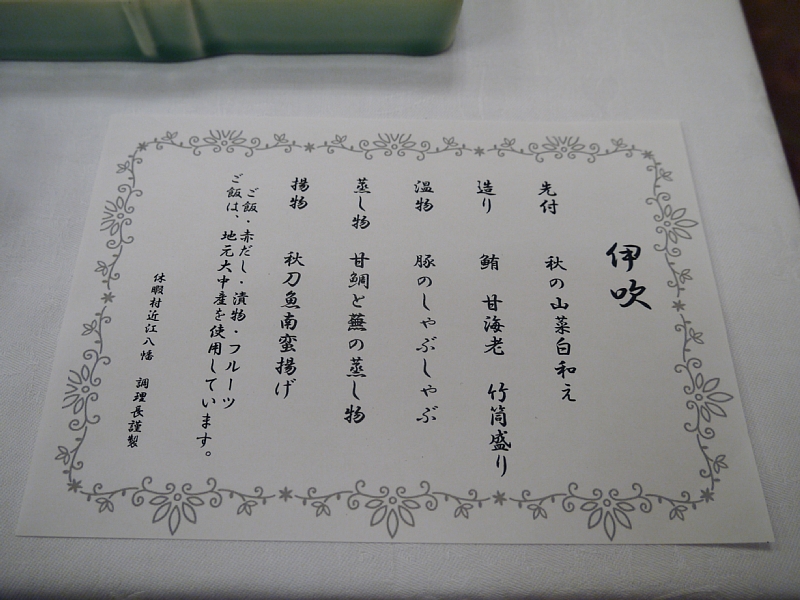 伊吹
先付 秋の山菜白和え
造り 鮪 甘海老 竹筒盛り
温物 豚のしゃぶしゃぶ
蒸し物 甘鯛と蕪の蒸し物
揚物 秋刀魚南蛮揚げ
ご飯・赤だし・漬物・フルーツ
ご飯は、地元大中産を使用しています。
休暇村近江八幡 調理長謹製